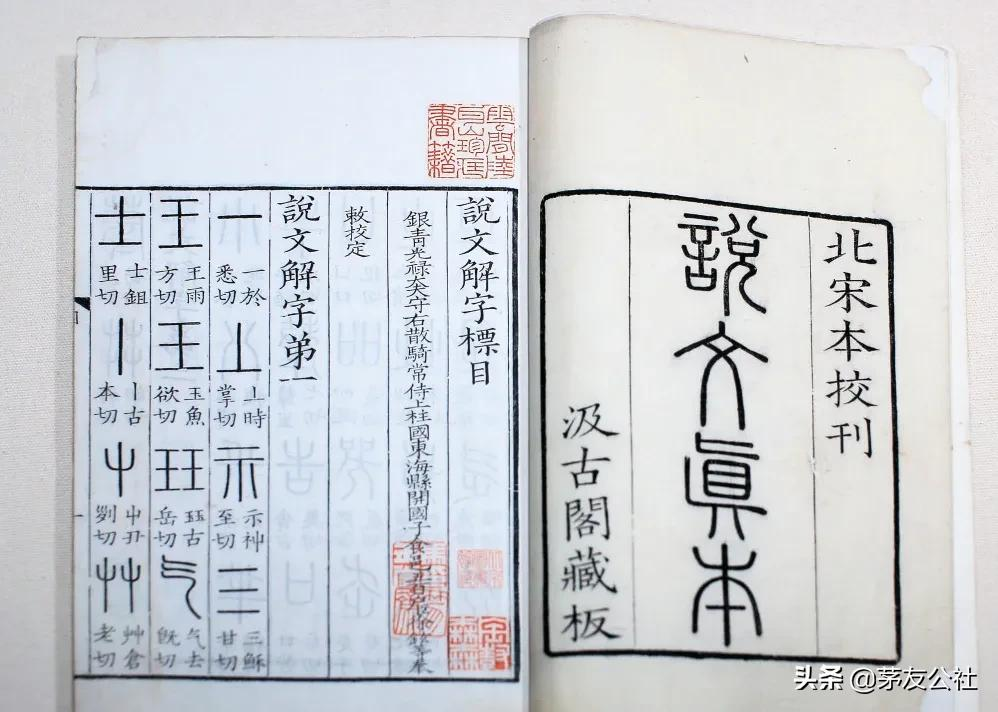 北宋本挍刊
說文眞本
汲古閣藏板
雲間陸
耳山珍藏
書籍
說文解字標目
銀青光祿大夫守右散騎常侍上柱國東海縣開國子食邑五百戶臣徐鉉等奉
敕校定
說文解字弟一
一 一於悉切 丄 丄時掌切 示 示神至切 三 三穌甘切
王 王雨方切 玉 玉魚欲切 玨 玨古岳切 气 气去旣切
士 士鉏里切 丨 丨古本切 屮 屮丑列切 艸 艸倉老切
头条 @茅友公社